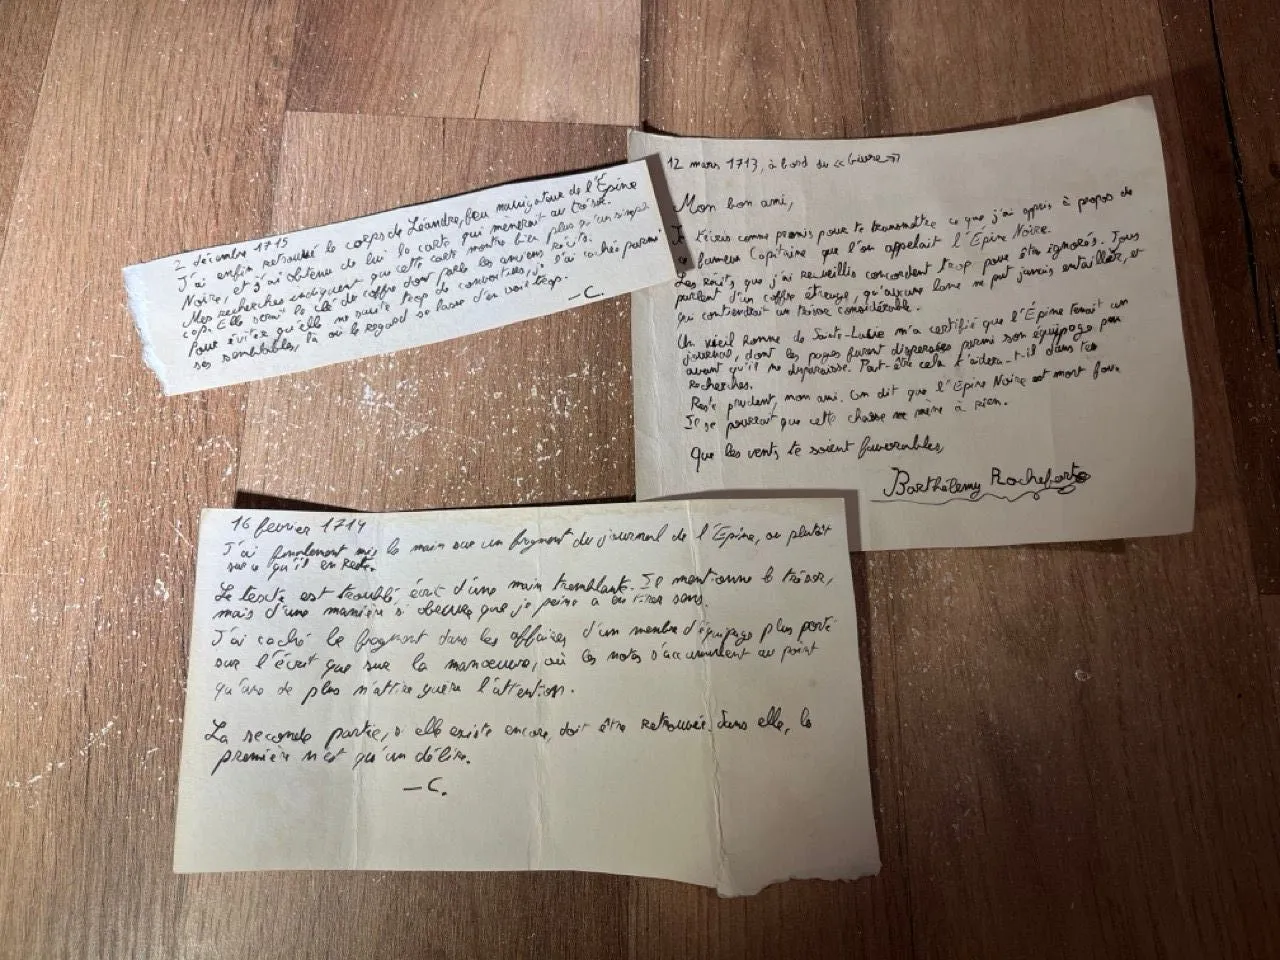 2 décembre 1715
J'ai enfin retrouvé le corps de Léandre, feu navigateur de l'Épine
Noire, et j'ai obtenu de lui la carte qui mènerait au trésor.
Mes recherches indiquent que cette carte montre bien plus qu'un simple
cap. Elle serait la clé du coffre dont parle les anciens récits.
Pour éviter qu'elle ne suscite trop de convoitises, je l'ai caché parmi
ses semblables, là où le regard se lasse d'en voir trop.
—C.
12 mars 1713, à bord du «Guivre»
Mon bon ami,
Je t'écris comme promis pour te transmettre ce que j'ai appris à propos de
ce fameux Capitaine que l'on appelait l'Épine Noire.
Les récits que j'ai recueillis concordent trop pour être ignorés. Tous
parlent d'un coffre étrange, qu'aucune lame ne put jamais entailler, et
qui contiendrait un trésor considérable.
Un vieil homme de Sainte-Lucie m'a certifié que l'Épine tenait un
journal, dont les pages furent dispersées parmi son équipage peu
avant qu'il ne disparaisse. Peut-être cela t'aidera-t-il dans tes
recherches.
Reste prudent, mon ami. On dit que l'Épine Noire est mort fou.
Il se pourrait que cette chasse ne mène à rien.
Que les vents te soient favorables,
Barthélemy Rochefort
16 fevrier 1714
J'ai finalement mis la main sur un fragment du journal de l'Épine, ou plutôt
sur ce qu'il en reste.
Le texte est troublé écrit d'une main tremblante. Il mentionne le trésor,
mais d'une manière si obscure que je peine à en tirer sens.
J'ai caché le fragment dans les affaires d'un membre d'équipage plus porté
sur l'écrit que sur la manoeuvre, où les notes s'accumulent au point
qu'une de plus n'attire guère l'attention.
La seconde partie, si elle existe encore, doit être retrouvée. Sans elle, la
première n'est qu'un délire.
—C.